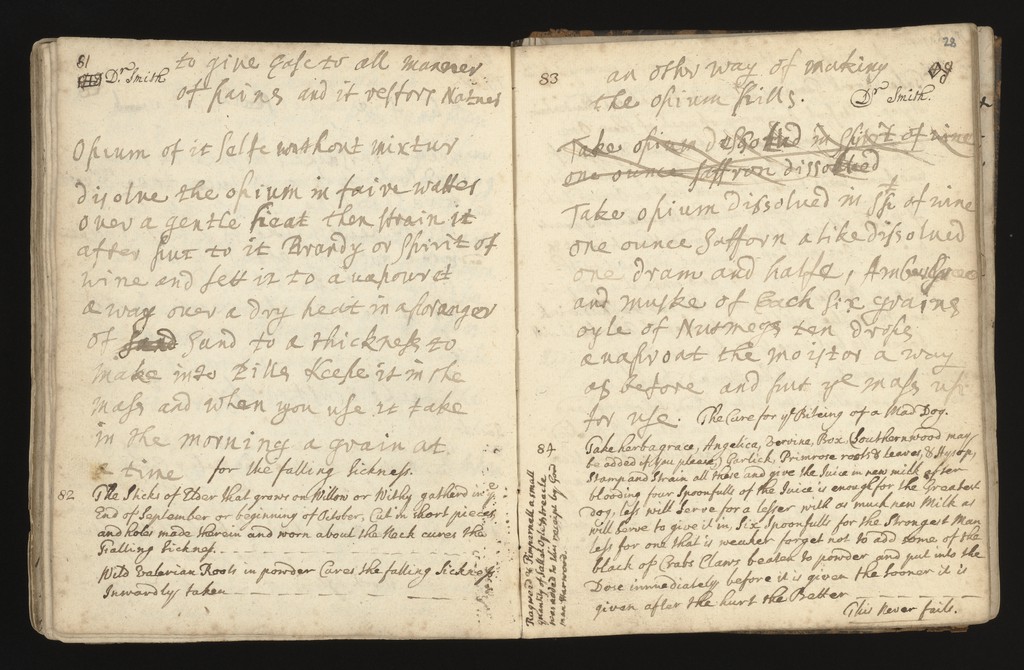 81
Dr Smith
to give Ease to all manner
of pains and it restors Natuer
Opium of it selfe without mixtur
Disolve the opium in faire watter
over a gentle heat then strain it
after put to it Brandy or Spirit of
wine and sett it to avapouret
a way over a dry heat in a
of Sand to a thickness to
make into Pills Keepe it in the
mass and when you use it take
in the morning a grain at
a time
for the falling Sickness.
82 The Sticks of Elder that grows on Willow or Withy gatherd in ye
End of September or beginning of October, Cut in short pieces
and holes made therein and worn about the Neck cures the
Falling Sickness.
Wild Valerian Roots in powder Cures the falling Sickness
Inwardly taken
28
83
an other way of making
the opium pills.
Dr Smith.
Take opium dissolled in spirit of wine
one ounce saffron dissolled
Take opium dissolved in spt of wine
one ounce Safforn alike dissolved
one dram and halfe, AmberGreec
and muske of Each six grains
oyle of Nutmegs ten drops
avaproat the moistor a way
as before and put ye mass up
for use.
The Cure for ye Biteing of a Mad Dog.
84 Take herbagrace, Angelica, Vervine, Box (Southernwood may
be added if you please) Garlick, Primrose roots & leaves, & Hyssop,
Stamp and Strain all these and give the Juice in new milk after
blooding four Spoonfulls of the Juice is enough for the Greatest
Dog, less will Serve for a lesser with as much new Milk as
will serve to give it in, Six Spoonfulls for the Strongest Man
less for one that is weaker forget not to add some of the
black of Crabs Claws beaten to powder and put into the
Dose immediately before it is given the sooner it is
given after the hurt the Better
This Never fails.
Ragweed & Pimparnell a small
quantity of Sallad Oyle & treacle
was added to this receipt by God
man Harwood.